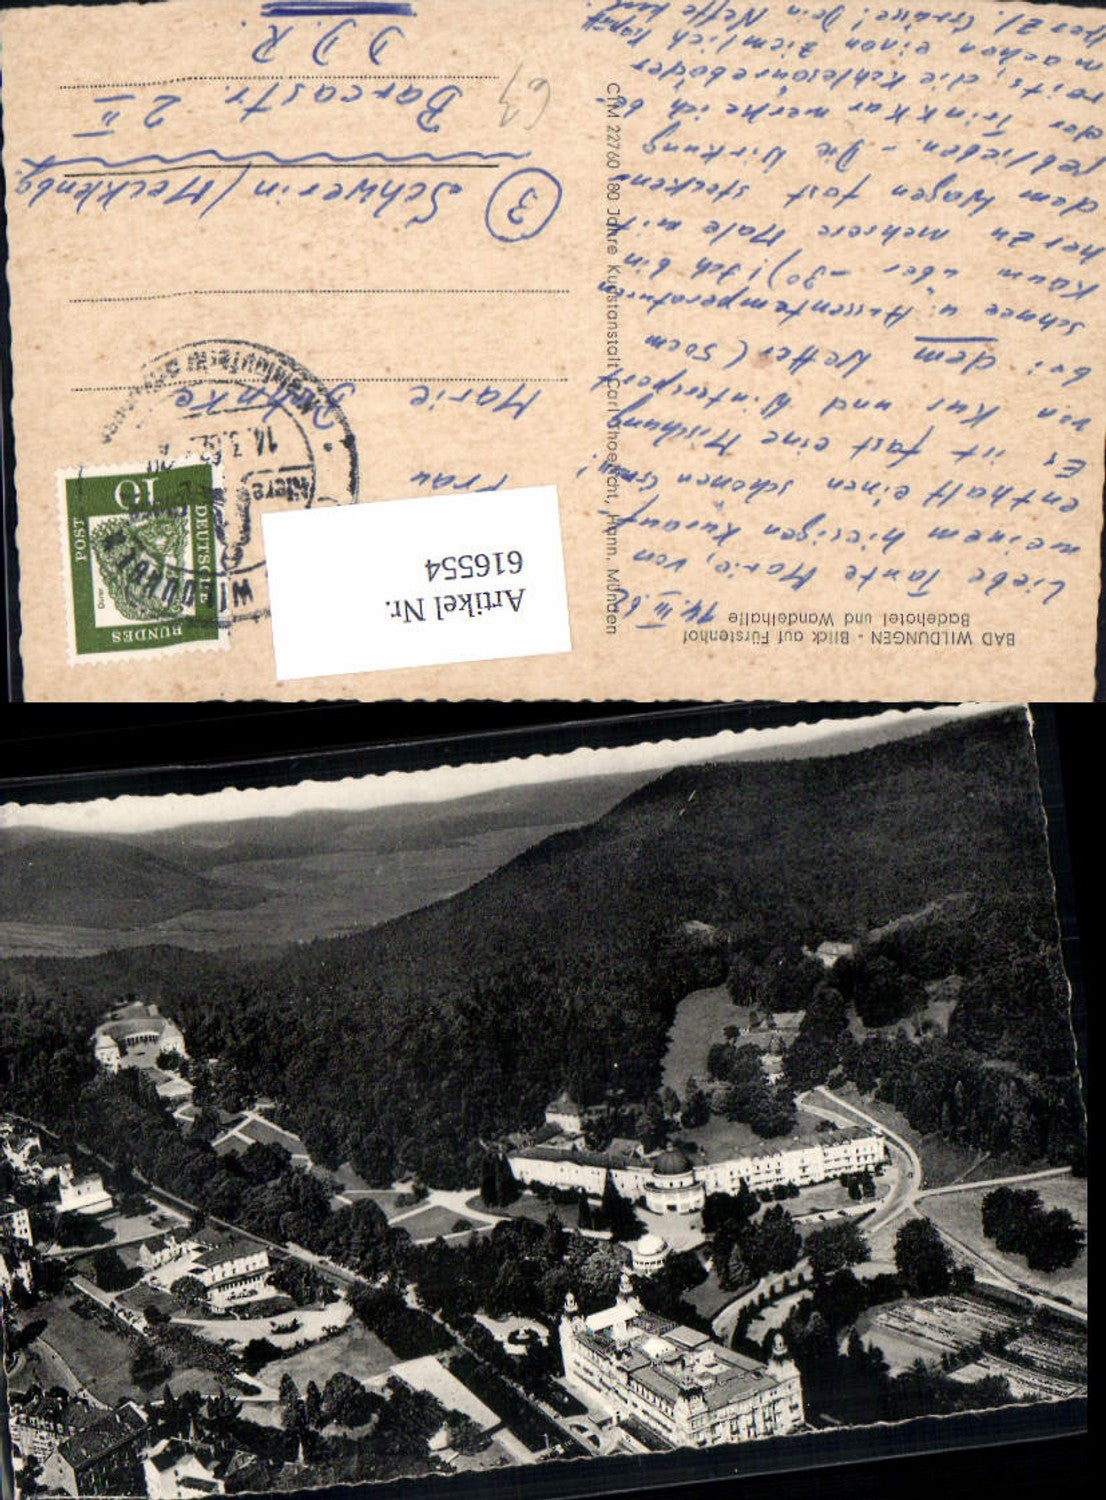 BAD WILDUNGEN - Blick auf Fürstenhof
Badehotel und Wandelhalle
14. III. 62
Liebe Tante Marie, von
meinem hiesigen Kurauf-
enthalt einen schönen Gruß!
Es ist fast eine Mischung
von Kur und Wintersport
bei dem Wetter (50cm
Schnee u. Aussentemperaturen
kaum über -30)! Ich bin
herzu mehrere Male mit
dem Wagen fast stecken-
geblieben. - Die Wirkung
der Trinkkur merke ich be-
reits, die Kohlesäurebäder
machen einen ziemlich kaputt
Herzl. Grüsse! Dein Neffe
CTM 22760 180 Jahre Kunstanstalt Carl Thoericht, Hann. Münden
Artikel Nr.
616554
BUNDES
DEUTSCHE
POST
10
Dürer
14. 3. 62
Niere
Frau
Marie
3
Schwerin/Mecklenbg.
Barcastr. 2 II
D.D.R.
63